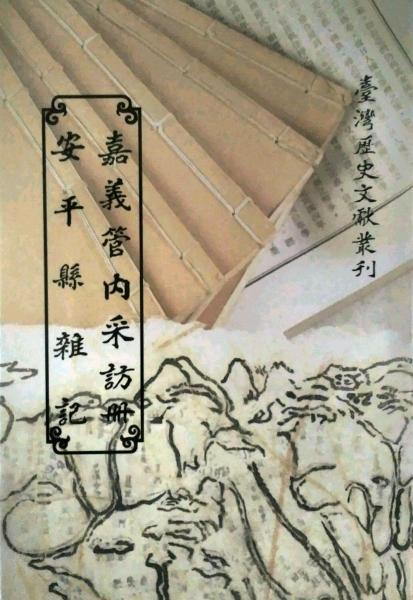 臺灣歷史文獻叢刊
嘉義管內采訪冊
安平縣雜記